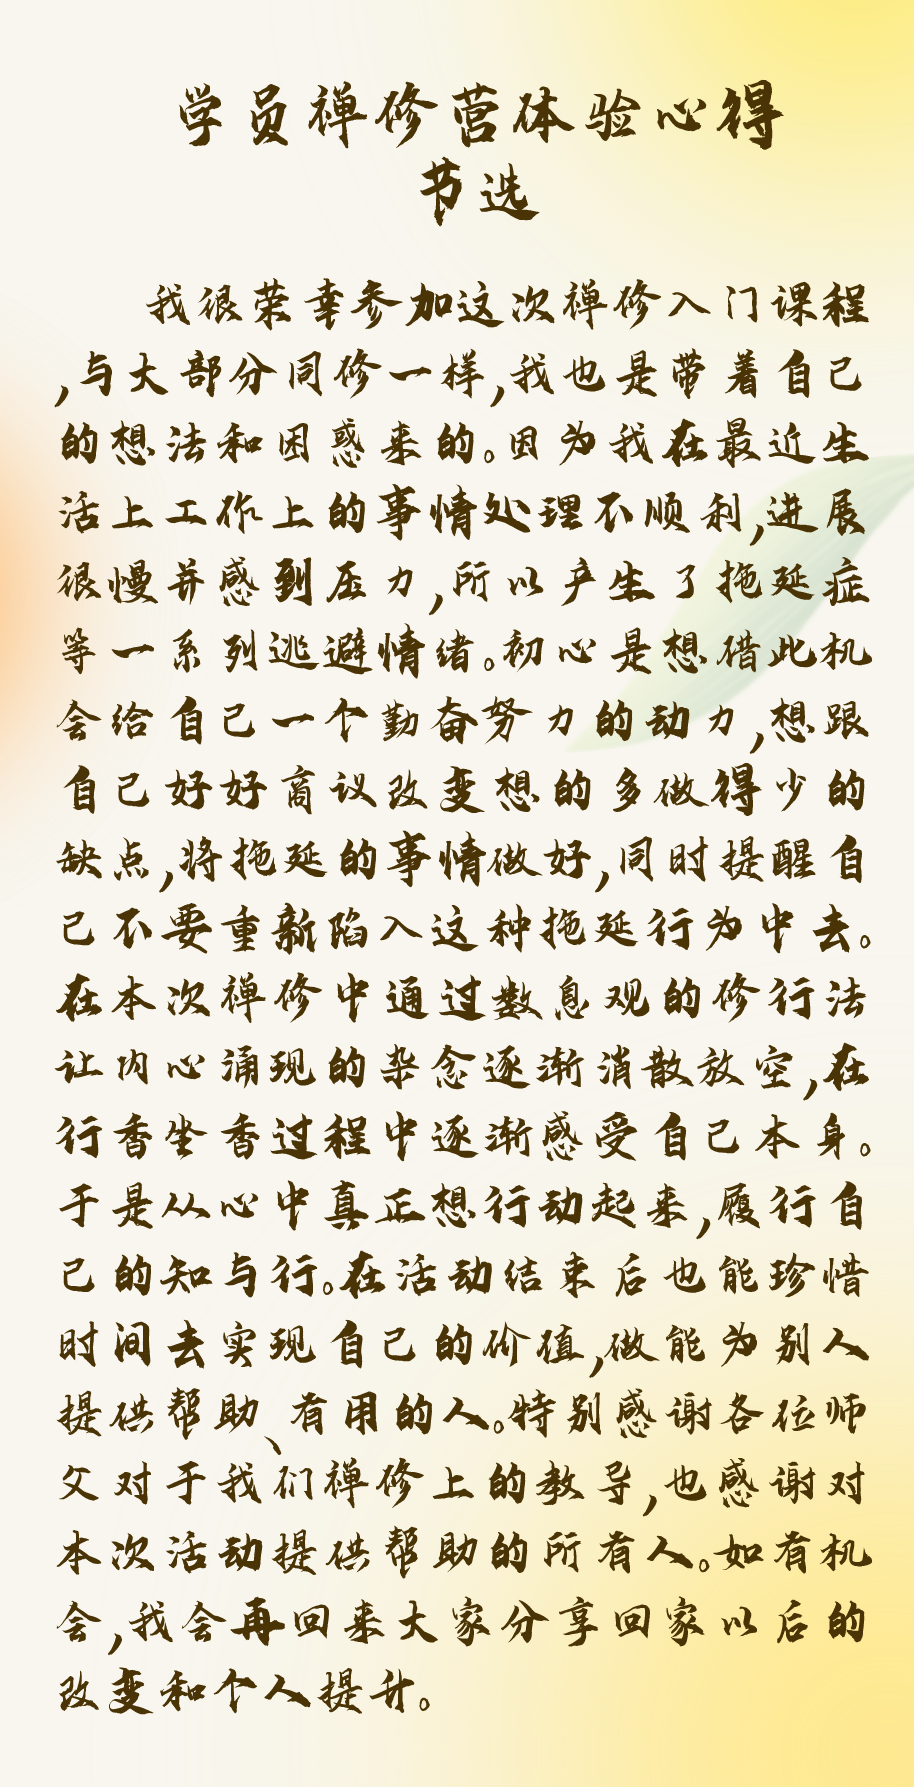 学员禅修营体验心得
节选
我很荣幸参加这次禅修入门课程
,与大部分同修一样,我也是带着自己
的想法和困惑来的。因为我在最近生
活上工作上的事情处理不顺利,进展
很慢并感到压力,所以产生了拖延症
等一系列逃避情绪。初心是想借此机
会给自己一个勤奋努力的动力,想跟
自己好好商议改变想的多做得少的
缺点,将拖延的事情做好,同时提醒自
己不要重新陷入这种拖延行为中去。
在本次禅修中通过数息观的修行法
让内心涌现的杂念逐渐消散放空,在
行香坐香过程中逐渐感受自己本身。
于是从心中真正想行动起来,履行自
己的知与行。在活动结束后也能珍惜
时间去实现自己的价值,做能为别人
提供帮助、有用的人。特别感谢各位师
父对于我们禅修上的教导,也感谢对
本次活动提供帮助的所有人。如有机
会,我会再回来大家分享回家以后的
改变和个人提升。